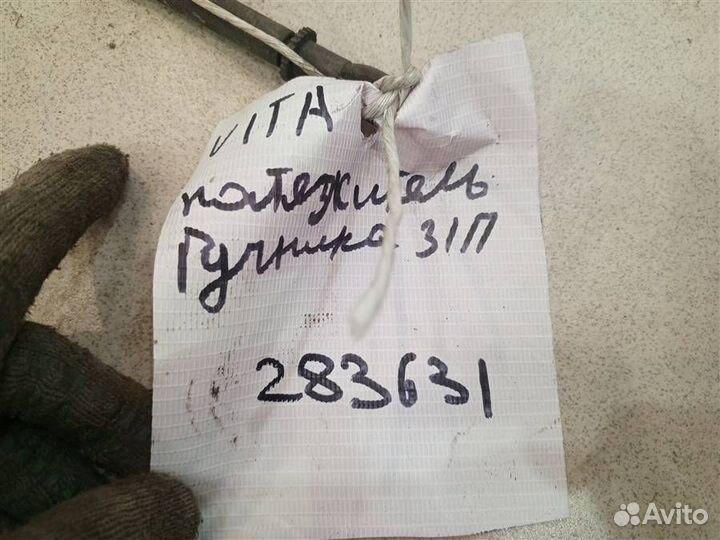 VITA
натяжитель
Ручника З/П
283631
Avito